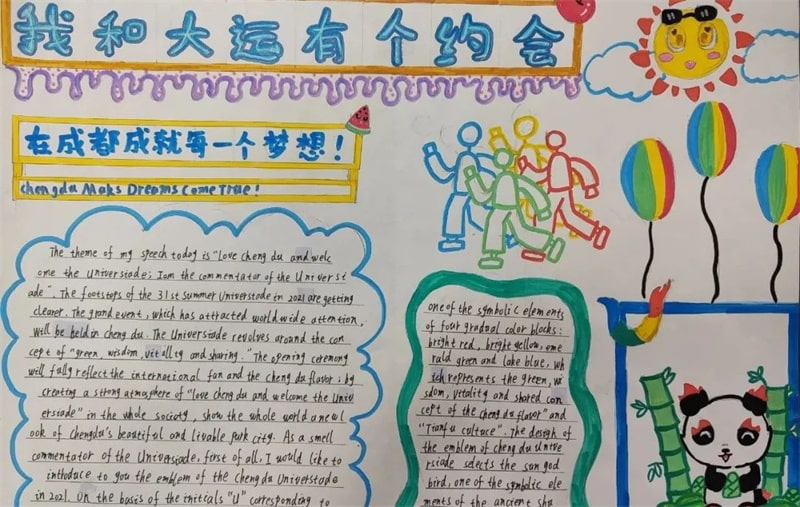 我和大运有个约会
在成都成就每一个梦想！
Chengdu Maks Dreams Come True!
The theme of my speech today is "Love cheng du and welc
ome the Universiade; I am the commentator of the Universi
ade". The footsteps of the 31st summer Universiade in 2021 are getting
clearer. The grand event, which has attracted worldwide attention,
will be held in cheng du. The Universiade revolves around the con
cept of "green, wisdom, vitality and sharing." The opening ceremony
will fully reflect the international fan and the cheng du flavor; by
creating a strong atmosphere of "love cheng du and welcome the Univ
ersiade" in the whole society, show the whole world a new l
ook of chengdu's beautiful and livable park city. As a small
commentator of the Universiade, first of all, I would like to
inthoduce to you the emblem of the Chengdu Universtade
in 2021. On the basis of the initials "U" corresponding to
one of the symbolic elements
of four gradual color blocks:
bright red, bright yellow, eme
rald green and lake blue, wh
ich ropresents the green, wi
sdom, vitality and shared con
cept of the cheng du flavor" and
"Tianfu culture". The design of
the emblem of cheng du Unive
rsiade selects the sun god
bird, one of the symbolic ele
ments of the ancient shu